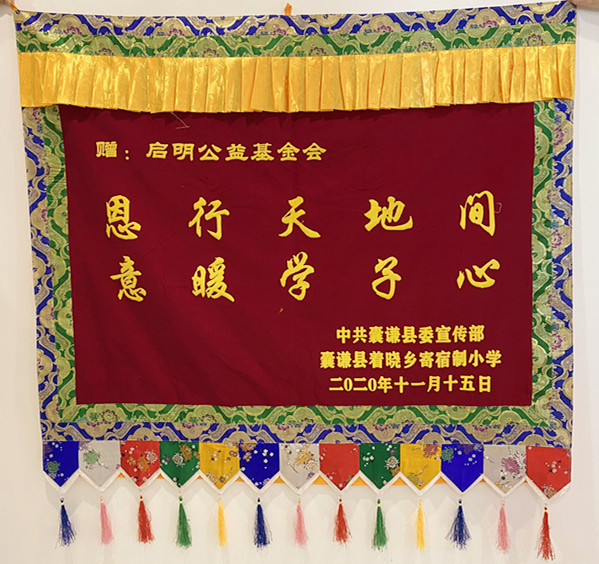 赠：启明公益基金会
恩行天地间
意暖学子心
中共囊谦县委宣传部
囊谦县着晓乡寄宿制小学
二〇二〇年十一月十五日